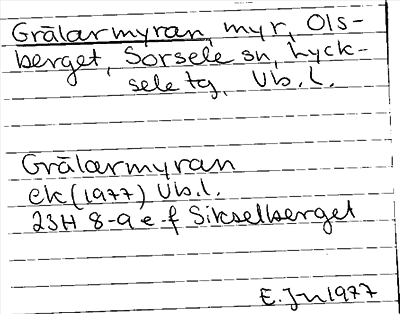 Grålarmyran, myr, Ols-
berget, Sorsele sn, Lyck-
sele tg, Vb.l.
Grålarmyran
ek (1977) Vb.l.
23H 8-9 e-f Sikselberget
E.Jn 1977